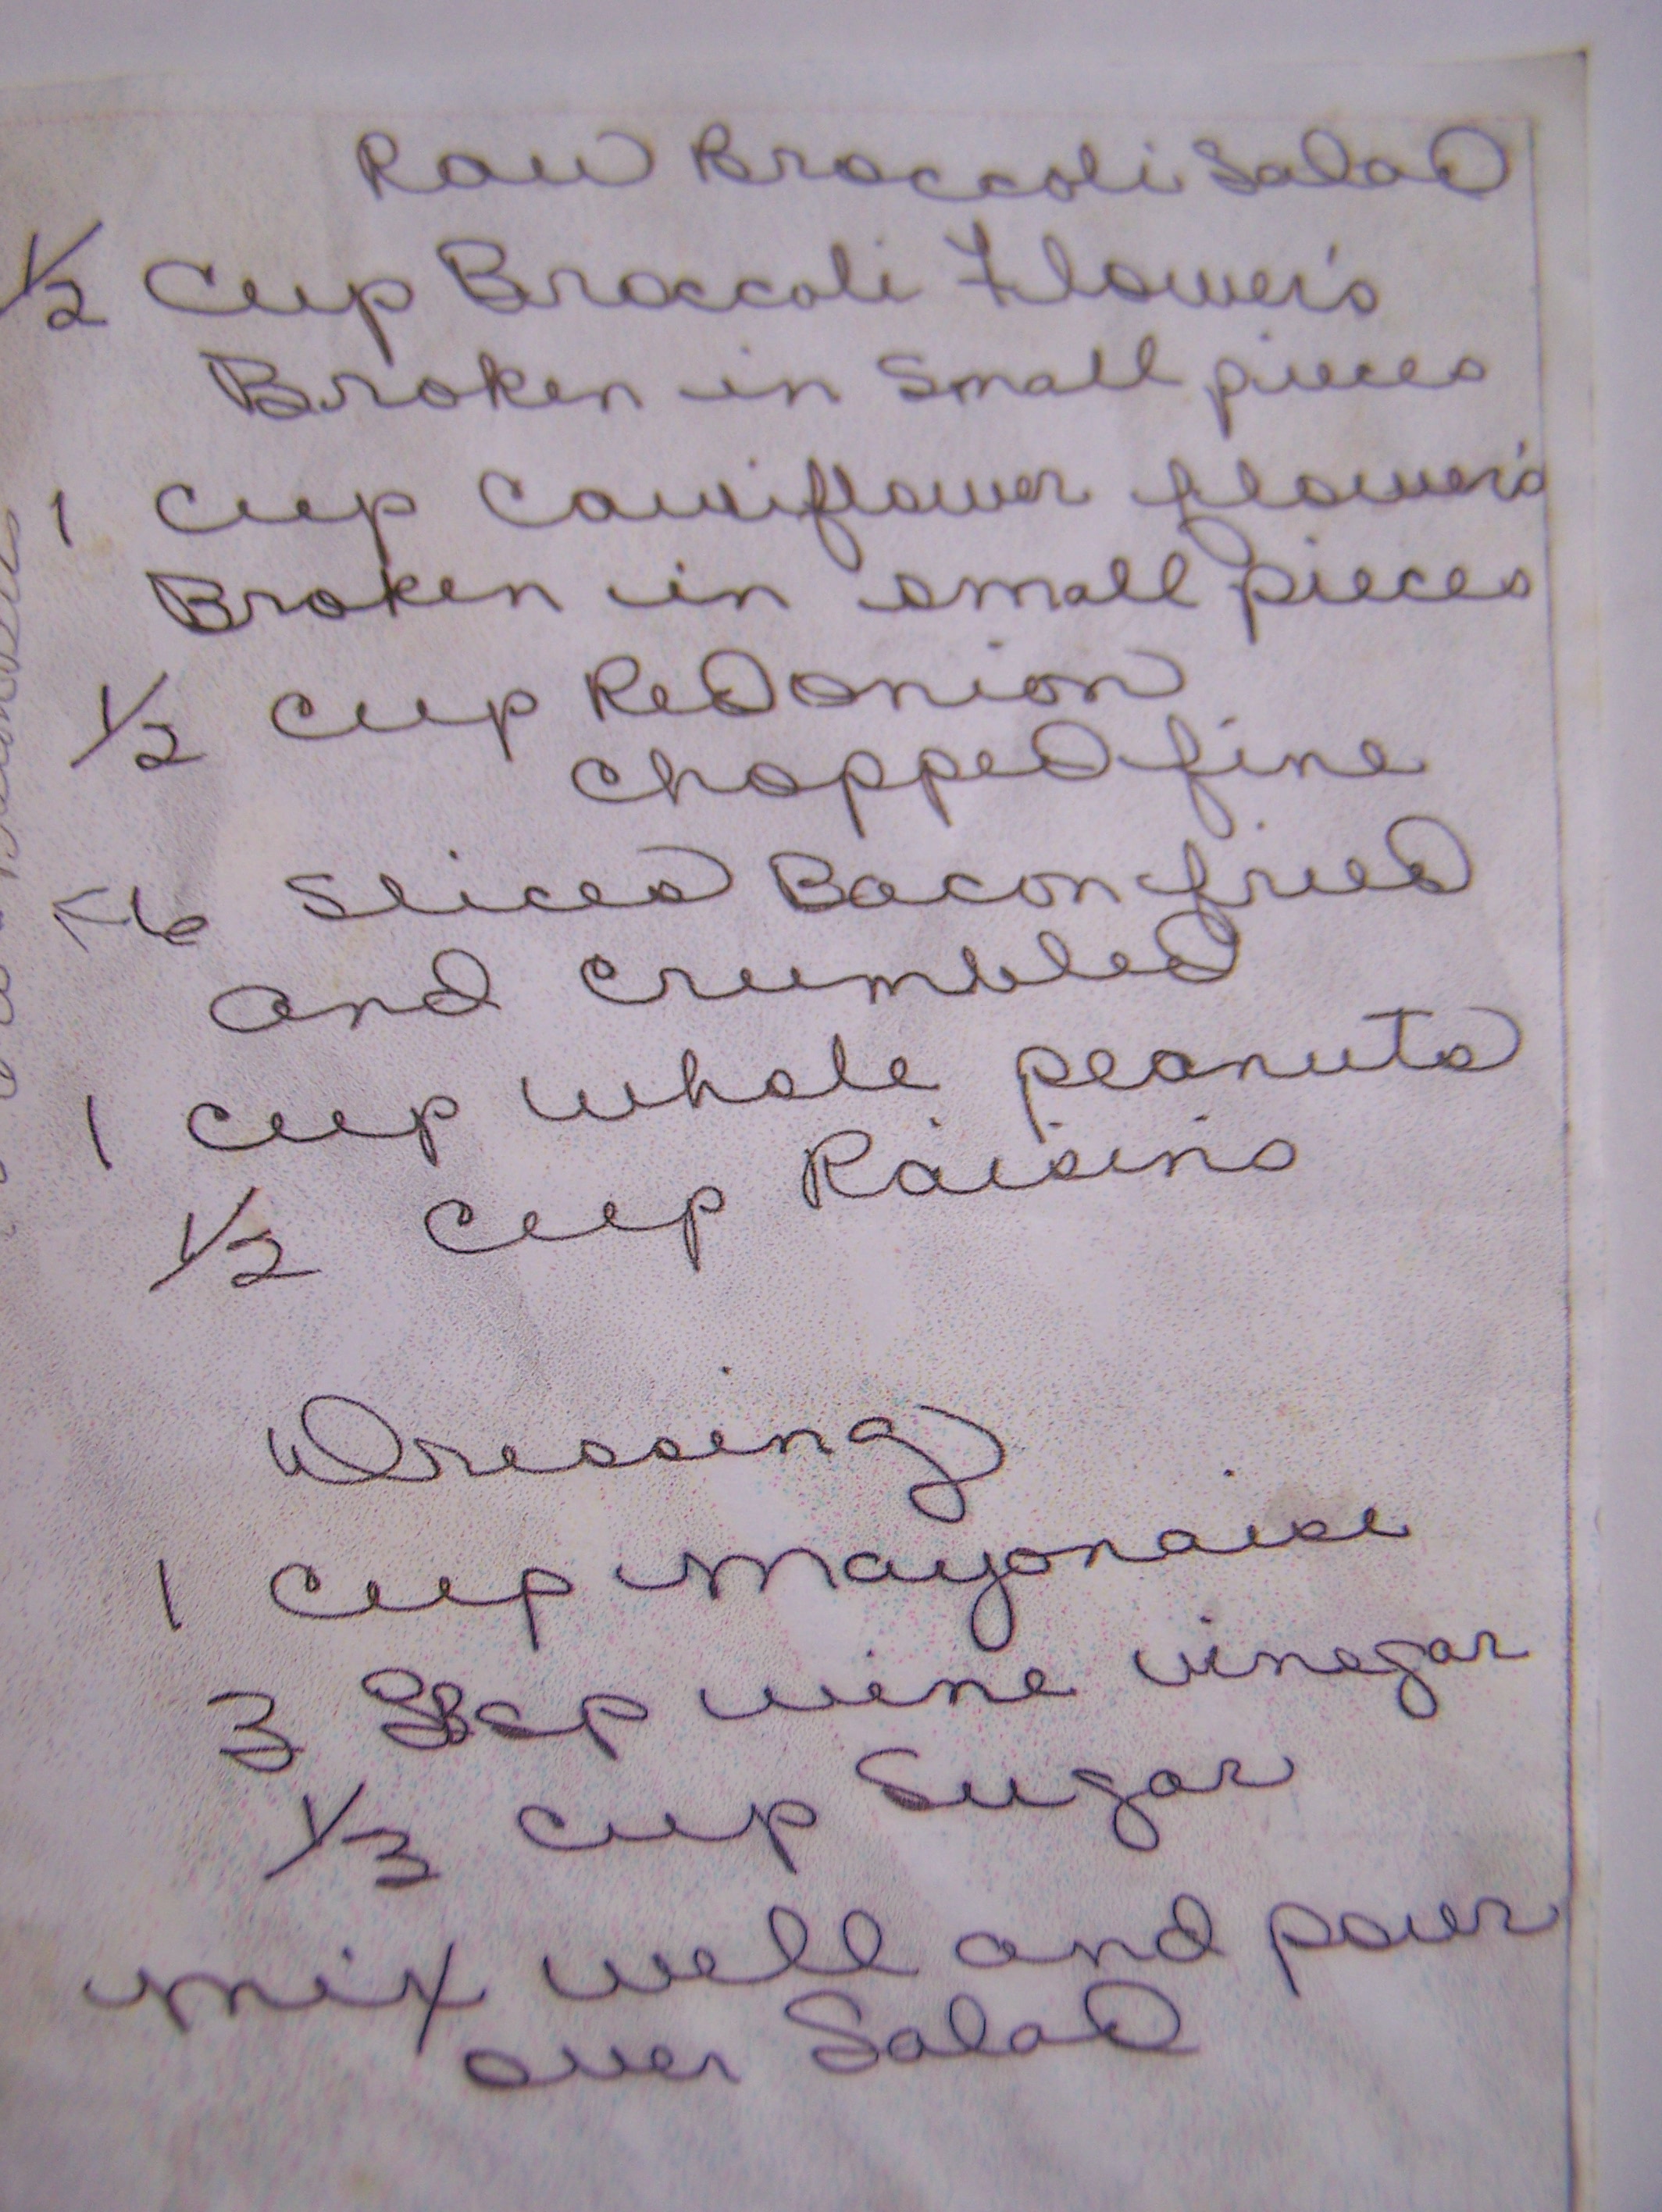 Raw Broccoli Salad
1/2 cup Broccoli Flower's
Broken in Small pieces
1 cup Cauliflower flower's
Broken in small pieces
1/2 cup Red onion
chopped fine
6 slices Bacon fried
and crumbled
1 cup whole peanuts
1/2 cup Raisins
Dressing
1 cup mayonaise
3 wine vinegar
1/3 cup Sugar
mix well and pour
over Salad